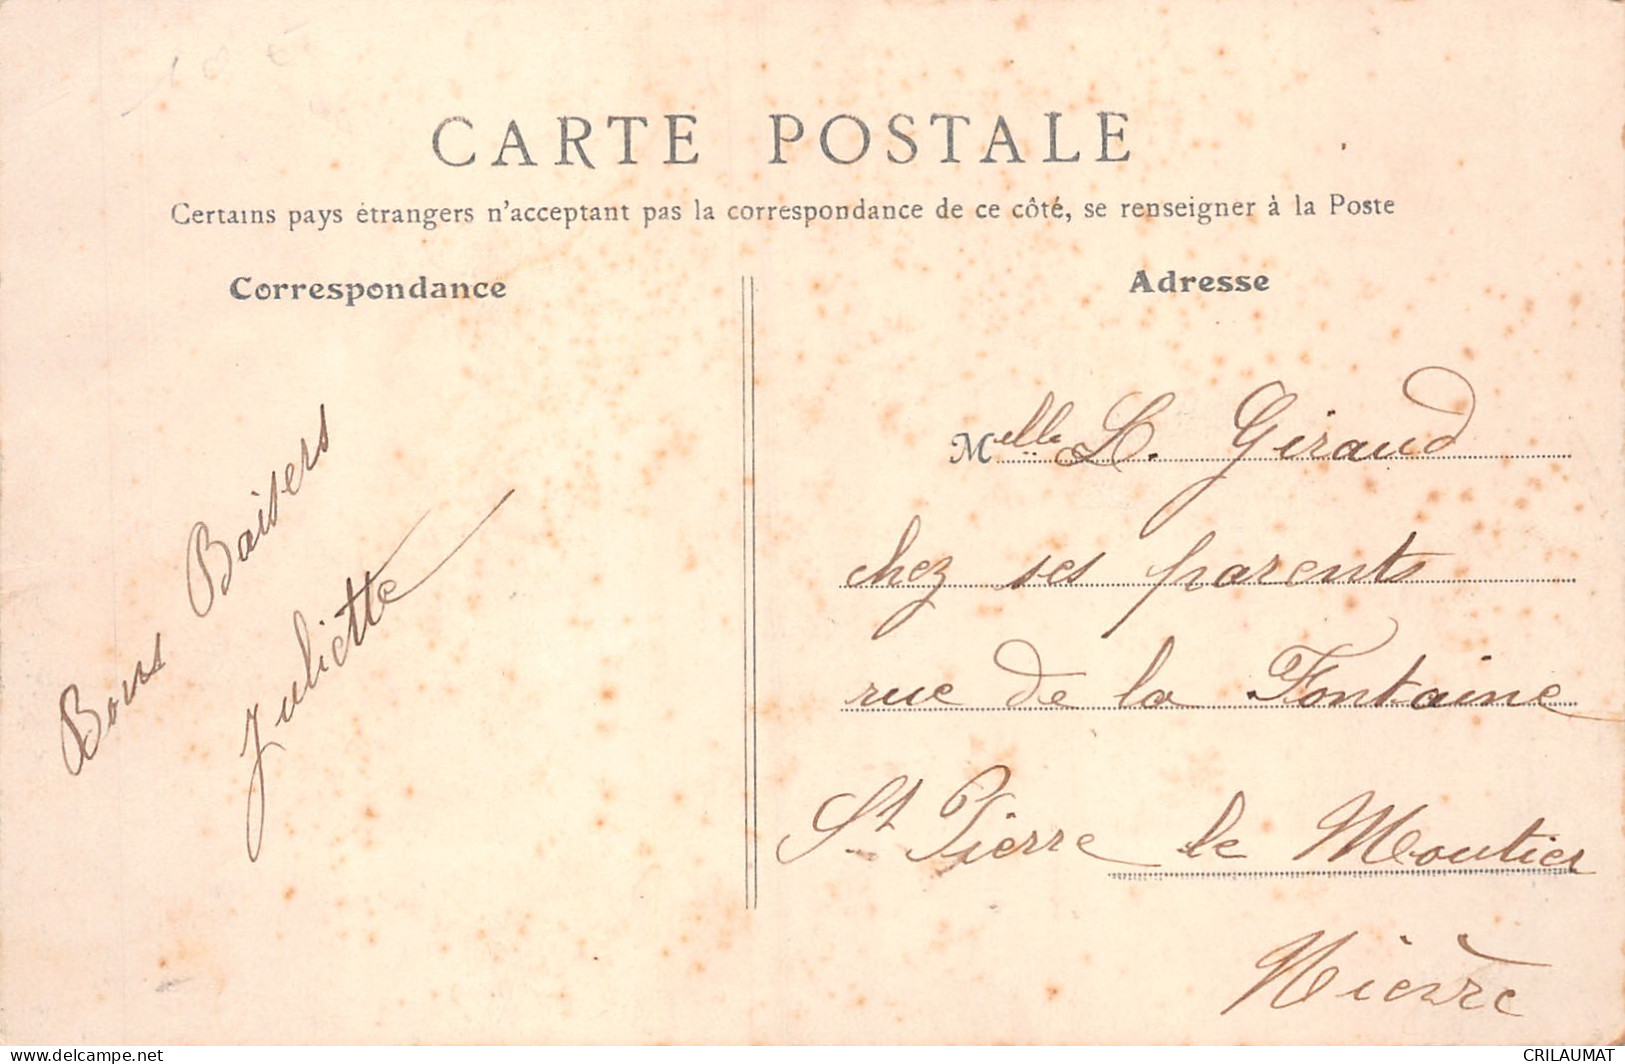 CARTE POSTALE
Certains pays étrangers n'acceptant pas la correspondance de ce côté, se renseigner à la Poste
Correspondance
Adresse
Bons Baisers
Juliette
Melle L. Giraud
chez ses parents
rue de la Fontaine
St Pierre le Moutier
Nièvre
www.delcampe.net
CRILAUMAT